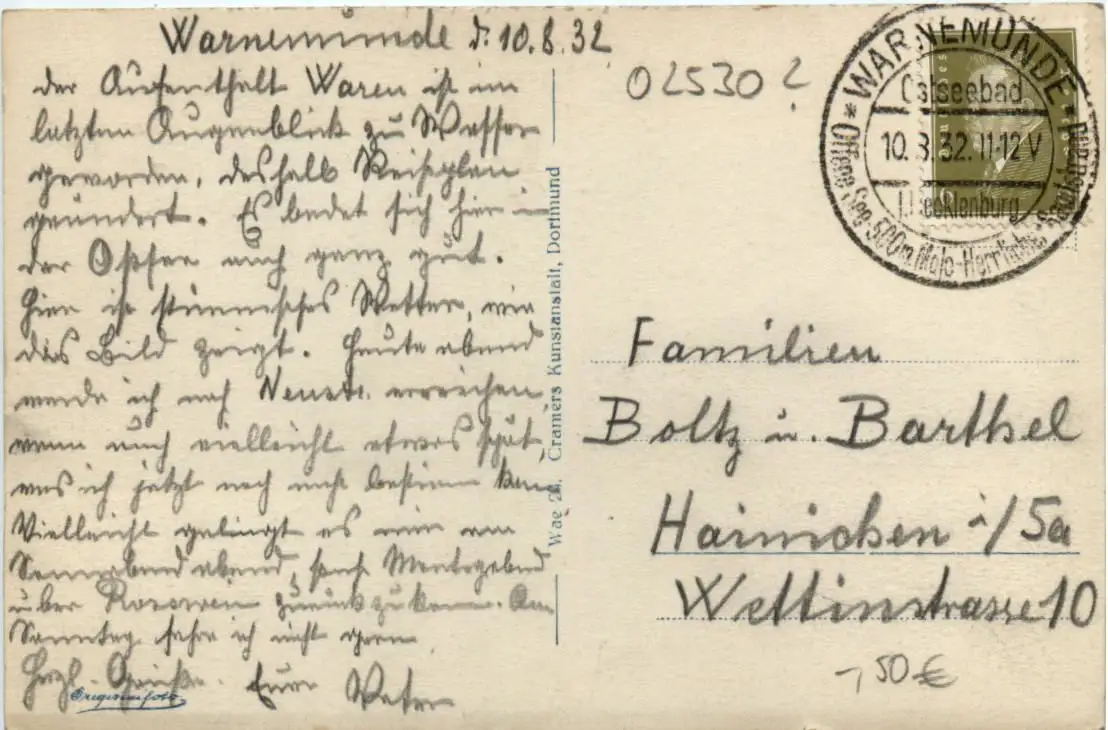 Warnemünde d. 10.8.32
der Aufenthalt Waren ist im
letzten Augenblick zu Wasser
geworden, deshalb Reiseplan
geändert. Es badet sich hier in
der Ostsee auch ganz gut.
Hier ist stürmisches Wetter, wie
das Bild zeigt. Heute abend
werde ich noch Neustr. erreichen
wenn auch vielleicht etwas spät
was ich jetzt noch nicht bestimmen kann
Vielleicht gelingt es mir am
Sonnabend abend, sonst Montagabend
über zurückzukommen. Am
Sonntag fahre ich nicht gern
Herzl. Grüße. Eure
Originalfoto
Wae 24. Cramers Kunstanstalt, Dortmund
02530 ?
WARNEMÜNDE
Ostseebad
10.8.32.11-12 V
(Mecklenburg)
Offene See-500m Mole-Herrl.
6
Familien
Boltz u. Barthel
Hainichen i/Sa
Wettinstrasse 10
-,50 €